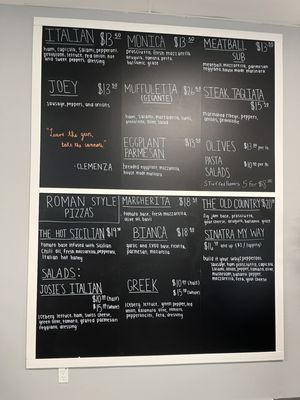 ITALIAN $13.50
ham, capicolla, Salami, pepperoni,
provolone, lettuce, red onion, hot
and sweet peppers, dressing
MONICA $13.50
prosciutto, fresh mozzarella,
arugula, tomato, pesto,
balsamic glaze
MEATBALL $13.50
SUB
meatball, mozzarella, parmesan
reggiano, house made marinara
JOEY $13.50
sausage, peppers, and onions
MUFFULETTA
(GIANTE)
ham, salami, mortadella, swiss,
provolone, olive salad
STEAK TAGLIATA
$15.50
marinated ribeye, peppers,
onions, provolone
"Leave the gun,
take the cannoli"
- CLEMENZA
EGGPLANT $13.50
PARMESAN
breaded eggplant, mozzarella,
house made marinara
OLIVES
PASTA
SALADS
ROMAN STYLE
PIZZAS
MARGHERITA $18.50
tomato base, fresh mozzarella,
olive oil, basil
THE OLD COUNTRY
fig jam base, prosciutto,
goat cheese, arugula, balsamic
THE HOT SICILIAN
tomato base infused with Sicilian
Chili oil, fresh mozzarella, pepperoni,
Italian hot honey
BIANCA $18.50
garlic and EVOO base, ricotta,
parmesan, mozzarella
SINATRA MY WAY
and up
build it your way! pepperoni,
sausage, ham, prosciutto, capicolla,
salami, onion, pepper, tomato, olive,
mushroom, banana pepper,
mozzarella, feta, goat cheese
SALADS:
JOSIES ITALIAN
$10.00 (half)
$15.00 (whole)
Iceberg lettuce, ham, swiss cheese,
green olive, tomato, grated parmesan
reggiano, dressing
GREEK $10.00 (half)
$15.00 (whole)
Iceberg lettuce, green pepper, red
onion, kalamata olive, tomato,
pepperoncini, feta, dressing